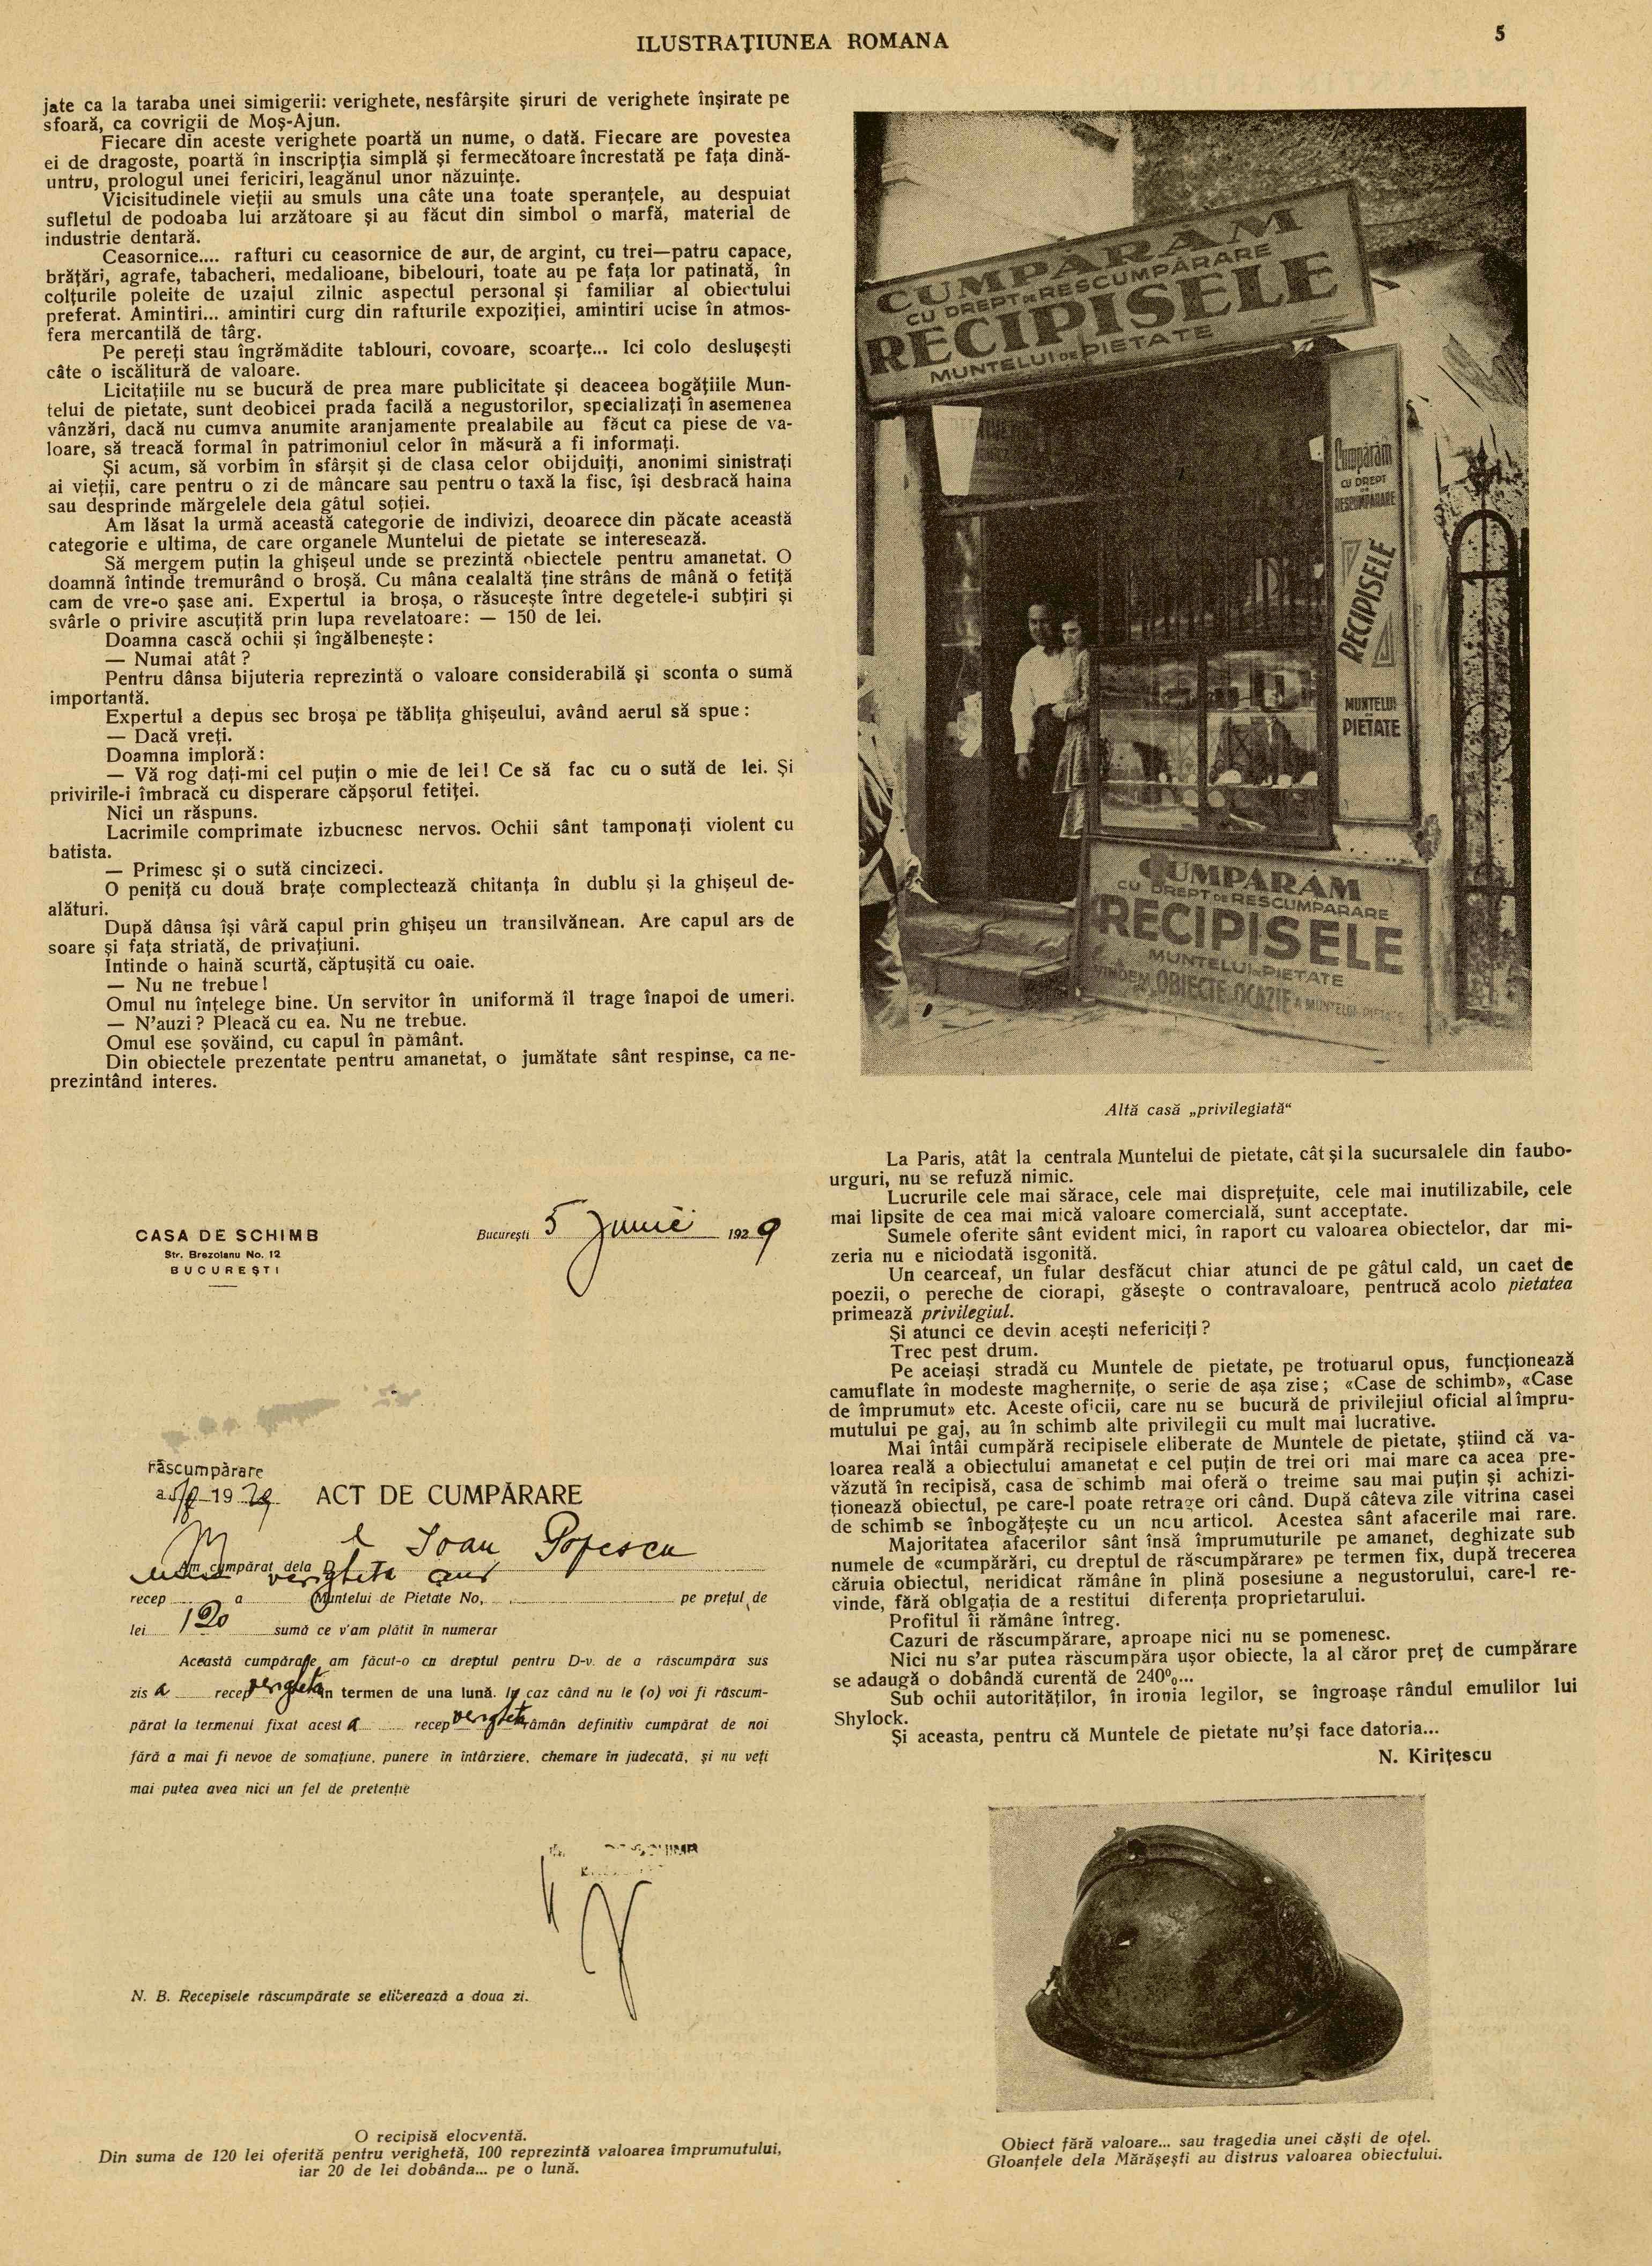 ILUSTRAŢIUNEA ROMANA
5
jate ca la taraba unei simigerii: verighete, nesfârşite şiruri de verighete înşirate pe
sfoară, ca covrigii de Moş-Ajun.
Fiecare din aceste verighete poartă un nume, o dată. Fiecare are povestea
ei de dragoste, poartă în inscripţia simplă şi fermecătoare încrestată pe faţa dină-
untru, prologul unei fericiri, leagănul unor năzuinţe.
Vicisitudinele vieţii au smuls una câte una toate speranţele, au despuiat
sufletul de podoaba lui arzătoare şi au făcut din simbol o marfă, material de
industrie dentară.
Ceasornice.... rafturi cu ceasornice de aur, de argint, cu trei—patru capace,
brăţări, agrafe, tabacheri, medalioane, bibelouri, toate au pe faţa lor patinată, în
colţurile poleite de uzajul zilnic aspectul personal şi familiar al obiectului
preferat. Amintiri... amintiri curg din rafturile expoziţiei, amintiri ucise în atmos-
fera mercantilă de târg.
Pe pereţi stau îngrămădite tablouri, covoare, scoarţe... Ici colo desluşeşti
câte o iscălitură de valoare.
Licitaţiile nu se bucură de prea mare publicitate şi deaceea bogăţiile Mun-
telui de pietate, sunt deobicei prada facilă a negustorilor, specializaţi în asemenea
vânzări, dacă nu cumva anumite aranjamente prealabile au făcut ca piese de va-
loare, să treacă formal în patrimoniul celor în măsură a fi informaţi.
Şi acum, să vorbim în sfârşit şi de clasa celor obijduiţi, anonimi sinistraţi
ai vieţii, care pentru o zi de mâncare sau pentru o taxă la fisc, îşi desbracă haina
sau desprinde mărgelele dela gâtul soţiei.
Am lăsat la urmă această categorie de indivizi, deoarece din păcate această
categorie e ultima, de care organele Muntelui de pietate se interesează.
Să mergem puţin la ghişeul unde se prezintă obiectele pentru amanetat. O
doamnă întinde tremurând o broşă. Cu mâna cealaltă ţine strâns de mână o fetiţă
cam de vre-o şase ani. Expertul ia broşa, o răsuceşte între degetele-i subţiri şi
svârle o privire ascuţită prin lupa revelatoare: — 150 de lei.
Doamna cască ochii şi îngălbeneşte:
— Numai atât?
Pentru dânsa bijuteria reprezintă o valoare considerabilă şi sconta o sumă
importantă.
Expertul a depus sec broşa pe tăbliţa ghişeului, având aerul să spue:
— Dacă vreţi.
Doamna imploră:
— Vă rog daţi-mi cel puţin o mie de lei! Ce să fac cu o sută de lei. Şi
privirile-i îmbracă cu disperare căpşorul fetiţei.
Nici un răspuns.
Lacrimile comprimate izbucnesc nervos. Ochii sânt tamponaţi violent cu
batista.
— Primesc şi o sută cincizeci.
O peniţă cu două braţe complectează chitanţa în dublu şi la ghişeul de-
alături.
După dânsa îşi vâră capul prin ghişeu un transilvănean. Are capul ars de
soare şi faţa striată, de privaţiuni.
Intinde o haină scurtă, căptuşită cu oaie.
— Nu ne trebue!
Omul nu înţelege bine. Un servitor în uniformă îl trage înapoi de umeri.
— N'auzi? Pleacă cu ea. Nu ne trebue.
Omul ese şovăind, cu capul în pământ.
Din obiectele prezentate pentru amanetat, o jumătate sânt respinse, ca ne-
prezintând interes.
CUMPARAM
CU DREPT DE RESCUMPĂRARE
RECIPISELE
MUNTELUI DE PIETATE
Cumpărăm
CU DREPT
DE
RESCUMPARARE
RECIPISELE
MUNTELUI
DE
PIETATE
CUMPARAM
CU DREPT DE RESCUMPARARE
RECIPISELE
MUNTELUI DE PIETATE
VINDEM OBIECTE OCAZIE A MUNTELUI PIETATE
Altă casă „privilegiată“
CASA DE SCHIMB
Str. Brezoianu No. 12
BUCUREŞTI
Bucureşti 5 Junie 1929
răscumpărare
a 5/7 1929 ACT DE CUMPĂRARE
Am cumpărat dela D. l Ioan Popescu
una verigheta aur
recep a Muntelui de Pietate No, pe preţul de
lei 120 sumă ce v'am plătit în numerar
Această cumpărare am făcut-o cu dreptul pentru D-v. de a răscumpăra sus
zis a recep verigheta în termen de una lună. In caz când nu le (o) voi fi răscum-
părat la termenul fixat acest a recep verigheta rămân definitiv cumpărat de noi
fără a mai fi nevoe de somaţiune, punere în întârziere, chemare în judecată, şi nu veţi
mai putea avea nici un fel de pretenţie
N. B. Recepisele răscumpărate se eliberează a doua zi.
O recipisă elocventă.
Din suma de 120 lei oferită pentru verighetă, 100 reprezintă valoarea împrumutului,
iar 20 de lei dobânda... pe o lună.
La Paris, atât la centrala Muntelui de pietate, cât şi la sucursalele din faubo-
urguri, nu se refuză nimic.
Lucrurile cele mai sărace, cele mai dispreţuite, cele mai inutilizabile, cele
mai lipsite de cea mai mică valoare comercială, sunt acceptate.
Sumele oferite sânt evident mici, în raport cu valoarea obiectelor, dar mi-
zeria nu e niciodată isgonită.
Un cearceaf, un fular desfăcut chiar atunci de pe gâtul cald, un caet de
poezii, o pereche de ciorapi, găseşte o contravaloare, pentrucă acolo pietatea
primează privilegiul.
Şi atunci ce devin aceşti nefericiţi?
Trec pest drum.
Pe aceiaşi stradă cu Muntele de pietate, pe trotuarul opus, funcţionează
camuflate în modeste magherniţe, o serie de aşa zise; «Case de schimb», «Case
de împrumut» etc. Aceste oficii, care nu se bucură de privilejiul oficial al împru-
mutului pe gaj, au în schimb alte privilegii cu mult mai lucrative.
Mai întâi cumpără recipisele eliberate de Muntele de pietate, ştiind că va-
loarea reală a obiectului amanetat e cel puţin de trei ori mai mare ca acea pre-
văzută în recipisă, casa de schimb mai oferă o treime sau mai puţin şi achizi-
ţionează obiectul, pe care-l poate retrage ori când. După câteva zile vitrina casei
de schimb se înbogăţeşte cu un nou articol. Acestea sânt afacerile mai rare.
Majoritatea afacerilor sânt însă împrumuturile pe amanet, deghizate sub
numele de «cumpărări, cu dreptul de răscumpărare» pe termen fix, după trecerea
căruia obiectul, neridicat rămâne în plină posesiune a negustorului, care-l re-
vinde, fără oblgaţia de a restitui diferenţa proprietarului.
Profitul îi rămâne întreg.
Cazuri de răscumpărare, aproape nici nu se pomenesc.
Nici nu s'ar putea răscumpăra uşor obiecte, la al căror preţ de cumpărare
se adaugă o dobândă curentă de 240%...
Sub ochii autorităţilor, în ironia legilor, se îngroaşe rândul emulilor lui
Shylock.
Şi aceasta, pentru că Muntele de pietate nu'şi face datoria...
N. Kiriţescu
Obiect fără valoare... sau tragedia unei căşti de oţel.
Gloanţele dela Mărăşeşti au distrus valoarea obiectului.